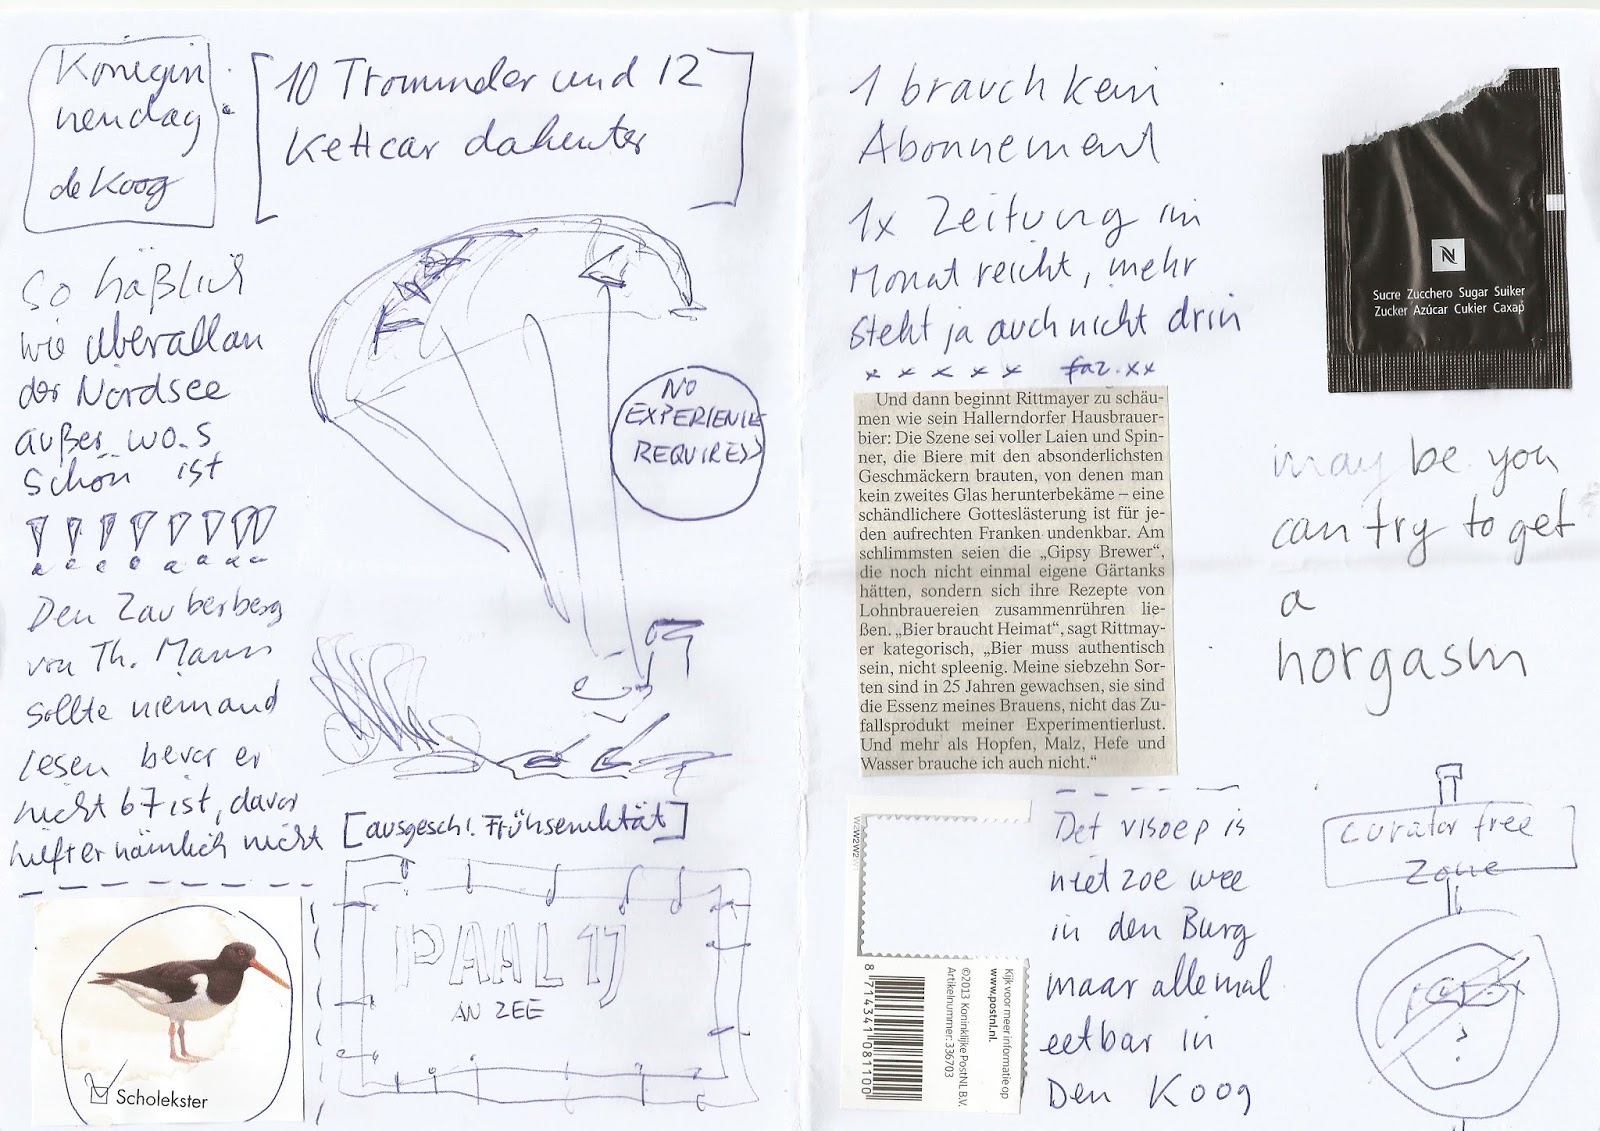 Königin
nendag
de Koog
10 Trommler und 12
Kettcar dahinter
So häßlich
wie überall an
der Nordsee
außer wo.s
schön ist
Den Zauberberg
von Th. Mann
sollte niemand
lesen bevor er
nicht 67 ist, davor
hilft er nämlich nicht
[ausgeschl. Frühsenilität]
NO
EXPERIENCE
REQUIRED
Scholekster
PAAL 17
AN ZEE
1 brauch kein
Abonnement
1x Zeitung im
Monat reicht, mehr
steht ja auch nicht drin
x x x x x faz.xx
Und dann beginnt Rittmayer zu schäu-
men wie sein Hallerndorfer Hausbrauer-
bier: Die Szene sei voller Laien und Spin-
ner, die Biere mit den absonderlichsten
Geschmäckern brauten, von denen man
kein zweites Glas herunterbekäme – eine
schändlichere Gotteslästerung ist für je-
den aufrechten Franken undenkbar. Am
schlimmsten seien die „Gipsy Brewer“,
die noch nicht einmal eigene Gärtanks
hätten, sondern sich ihre Rezepte von
Lohnbrauereien zusammenrühren lie-
ßen. „Bier braucht Heimat“, sagt Rittmay-
er kategorisch, „Bier muss authentisch
sein, nicht spleenig. Meine siebzehn Sor-
ten sind in 25 Jahren gewachsen, sie sind
die Essenz meines Brauens, nicht das Zu-
fallsprodukt meiner Experimentierlust.
Und mehr als Hopfen, Malz, Hefe und
Wasser brauche ich auch nicht.“
W2W2W2
Kijk voor meer informatie op
www.postnl.nl.
©2013 Koninklijke PostNL B.V.
Artikelnummer: 336703
8 714341 081100
Det visoep is
niet zoe wee
in den Burg
maar allemal
eetbar in
Den Koog
N
Sucre Zucchero Sugar Suiker
Zucker Azúcar Cukier Caxap
may be you
can try to get
a
norgasm
curator free
Zone